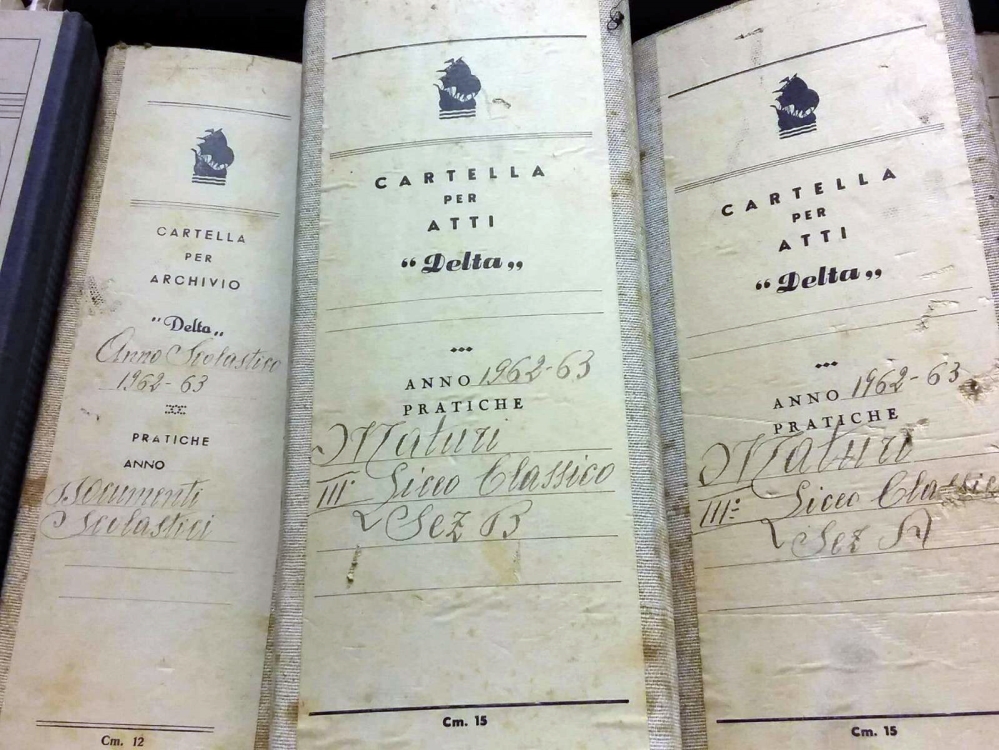 CARTELLA
PER
ARCHIVIO
"Delta„
Anno Scolastico
1962-63
PRATICHE
ANNO
Documenti
Scolastici
Cm. 12
CARTELLA
PER
ATTI
“Delta„
ANNO 1962-63
PRATICHE
Maturi
III: Liceo Classico
Sez B
Cm. 15
CARTELLA
PER
ATTI
“Delta„
ANNO 1962-63
PRATICHE
Maturi
III: Liceo Classico
Sez A
Cm. 15